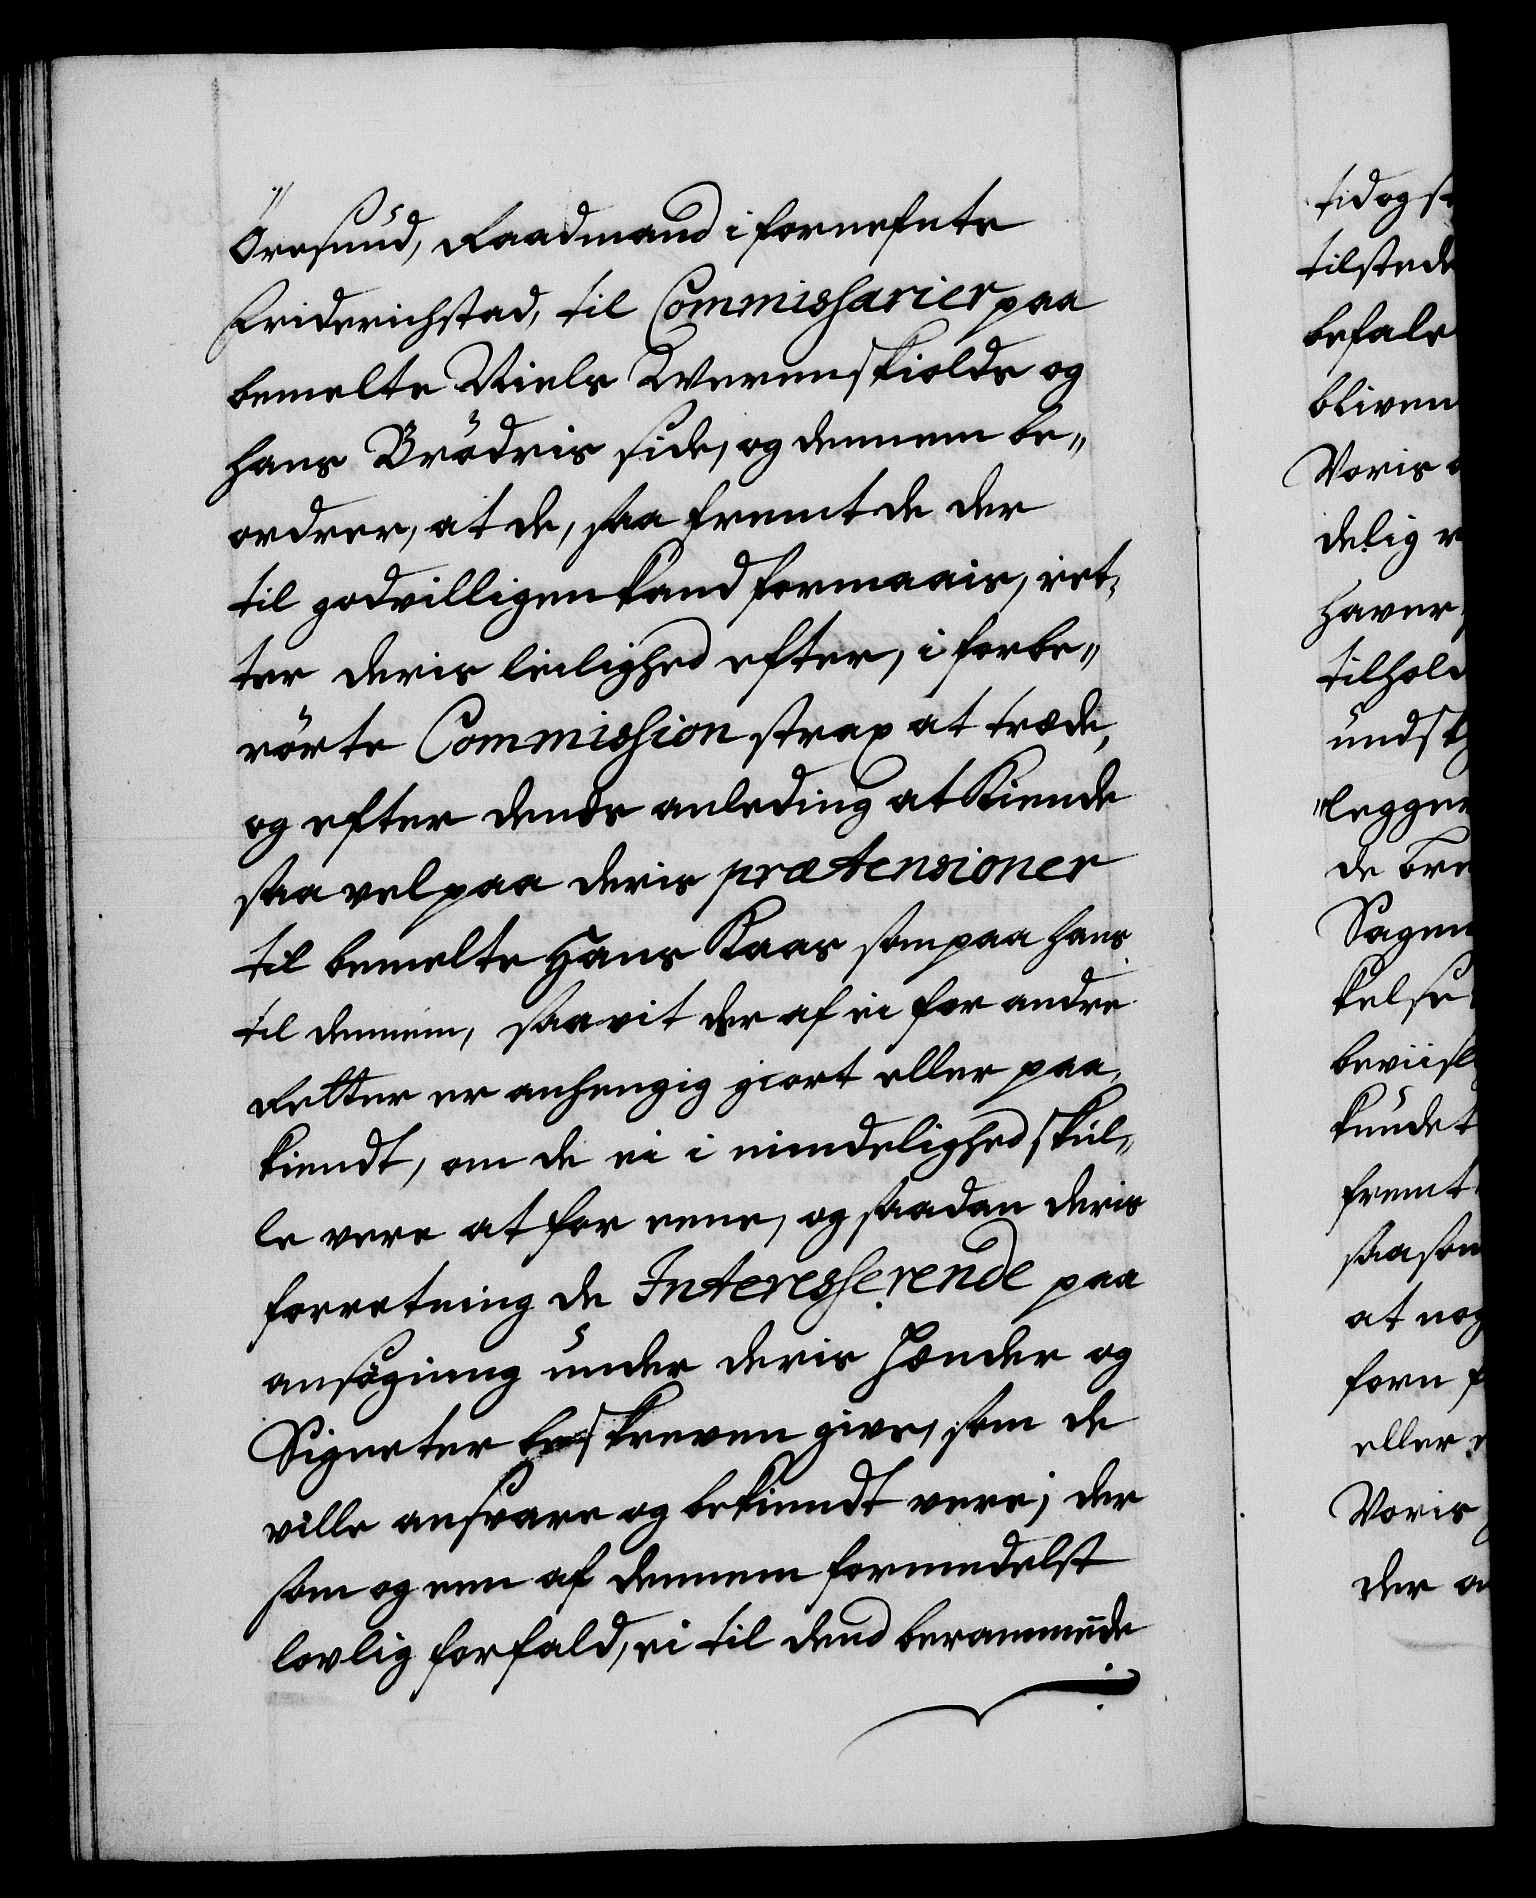 Öresund, Raadmand i fornefnte
Friderichstad, til Commissarier paa
bemelte Niels Werenskiolds og
hans Brödris side, og dennem be„
ordrer, at de, saa fremt de der
til godvilligen kand formaais, ret„
ter deris leilighed efter, i forbe„
rörte Commission strax at træde,
og efter dends anleding at Kiende
saa vel paa deris prætensioner
til bemelte Hans Kaas som paa hans
til dennem, saavit der af ei for andre
Retter er anhengig giort eller paa„
kiendt, om de ei i mindelighed skul„
le vere at for eene, og saadan deris
forretning de Interesserende paa
ansøgning under deris Hænder og
Signeter beskreven give, som de
ville ansvare og bekiendt vere; der
som og een af dennem formedelst
lovlig forfald, ei til dend berammede
tid og
tilstede
befale
bliven
Voris
delig
haver
tilhold
undsk
legge
de bre
Sagen
kelse
beviisl
kundet
fremt
saasom
at nog
forn
eller
Voris
der